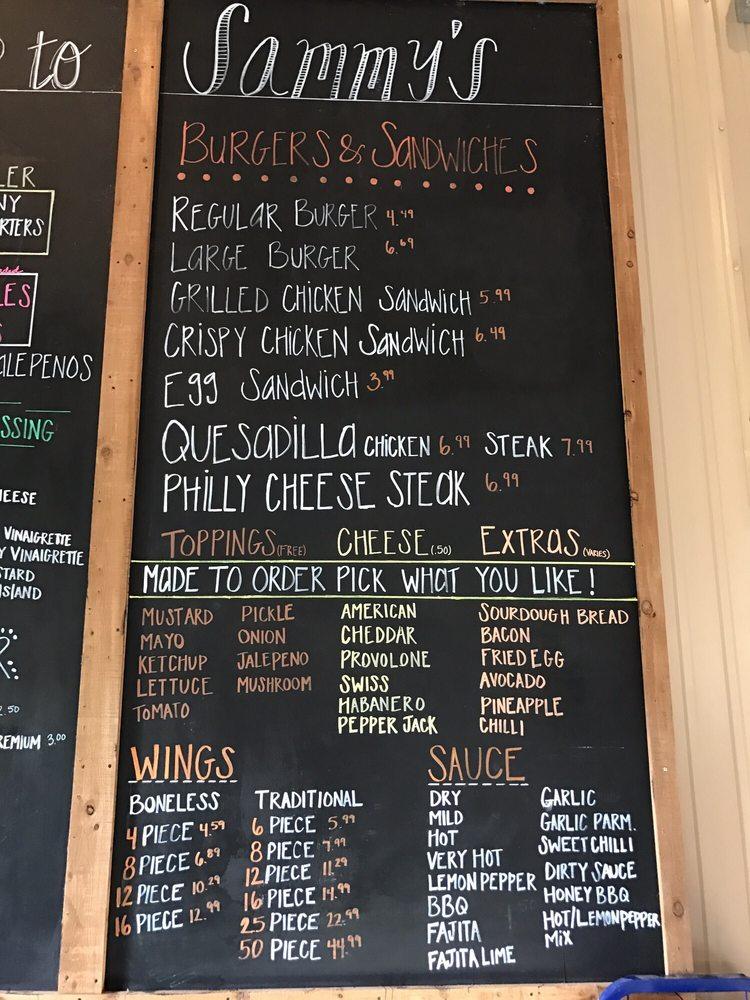 to
LER
NY
RTERS
LES
S
ALEPENOS
SSING
HEESE
VINAIGRETTE
Y VINAIGRETTE
STARD
ISLAND
2.50
REMIUM 3.00
Sammy's
BURGERS & SANDWICHES
REGULAR BURGER 4.49
LARGE BURGER 6.69
GRILLED CHICKEN SANDWICH 5.99
CRISPY CHICKEN SANDWICH 6.49
Egg SANDWICH 3.99
QUESADILLA CHICKEN 6.99 STEAK 7.99
PHILLY CHEESE STEAK 6.99
TOPPINGS (FREE) CHEESE (.50) EXTRAS (VARIES)
MADE TO ORDER PICK WHAT YOU LIKE!
MUSTARD PICKLE
MAYO ONION
KETCHUP JALEPENO
LETTUCE MUSHROOM
TOMATO
AMERICAN
CHEDDAR
PROVOLONE
SWISS
HABANERO
PEPPER JACK
SOURDOUGH BREAD
BACON
FRIED EGG
AVOCADO
PINEAPPLE
CHILLI
WINGS
BONELESS
4 PIECE 4.59
8 PIECE 6.89
12 PIECE 10.29
16 PIECE 12.99
TRADITIONAL
6 PIECE 5.99
8 PIECE 7.99
12 PIECE 11.29
16 PIECE 14.99
25 PIECE 22.99
50 PIECE 44.99
SAUCE
DRY
MILD
HOT
VERY HOT
LEMON PEPPER
BBQ
FAJITA
FAJITA LIME
GARLIC
GARLIC PARM.
SWEET CHILLI
DIRTY SAUCE
HONEY BBQ
HOT/LEMONPEPPER
MIX